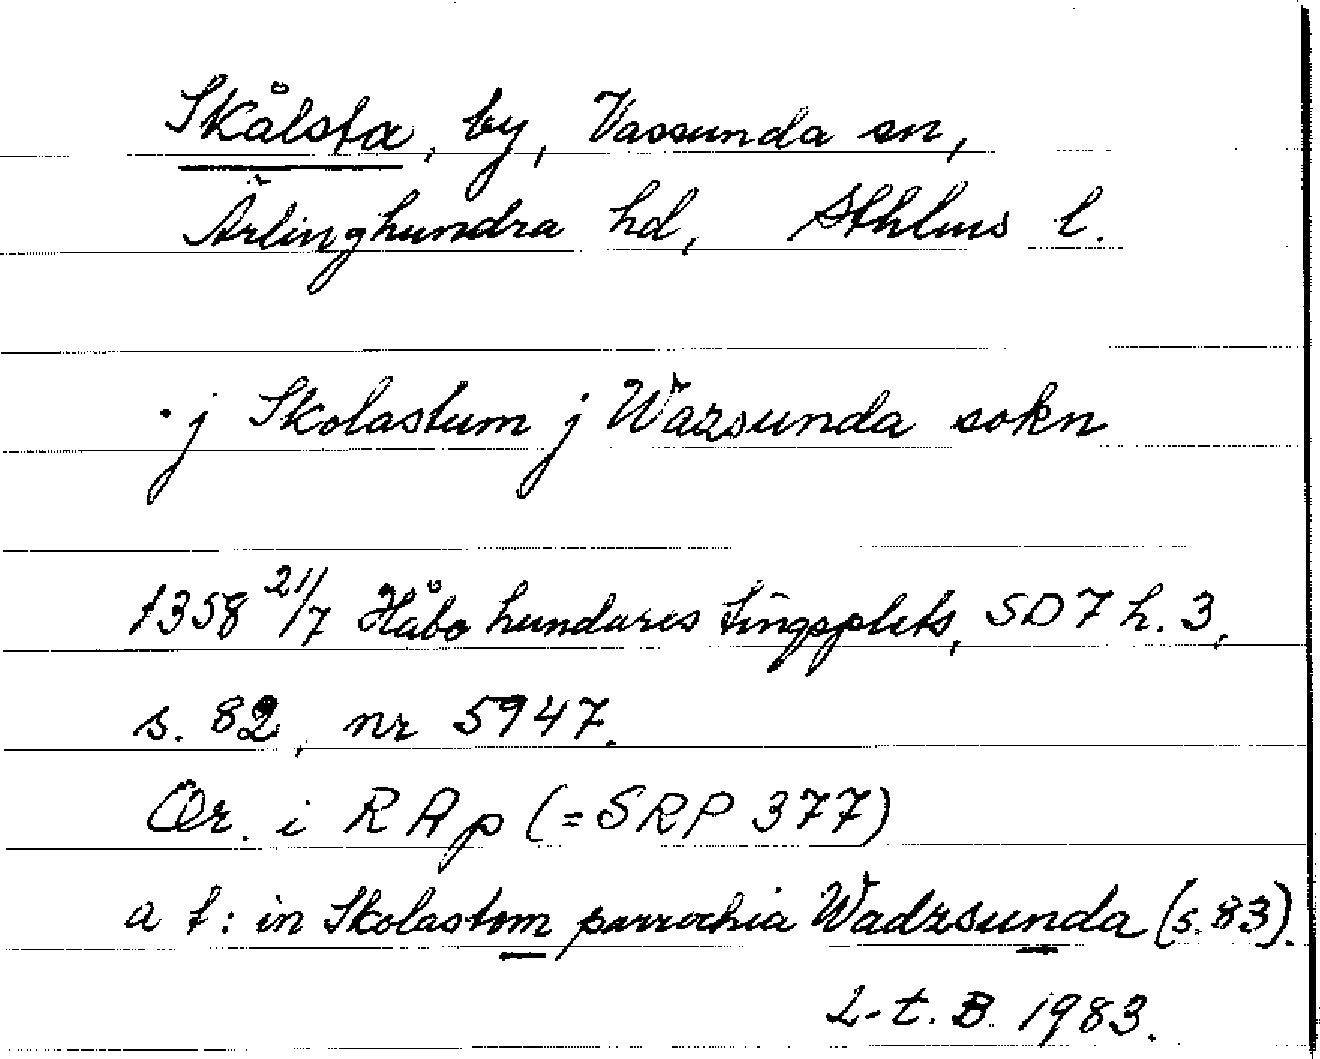 Skålsta, by, Vassunda sn,
Ärlinghundra hd, Sthlms l.
· j Skolastum j Wazsunda sokn
1358 21/7 Håbo hundares tingsplats, SD 7 h. 3,
s. 82, nr 5947.
Or. i RAp (= SRP 377)
a t: in Skolastom parrochia Wadzsunda (s. 83).
L-t. B. 1983.